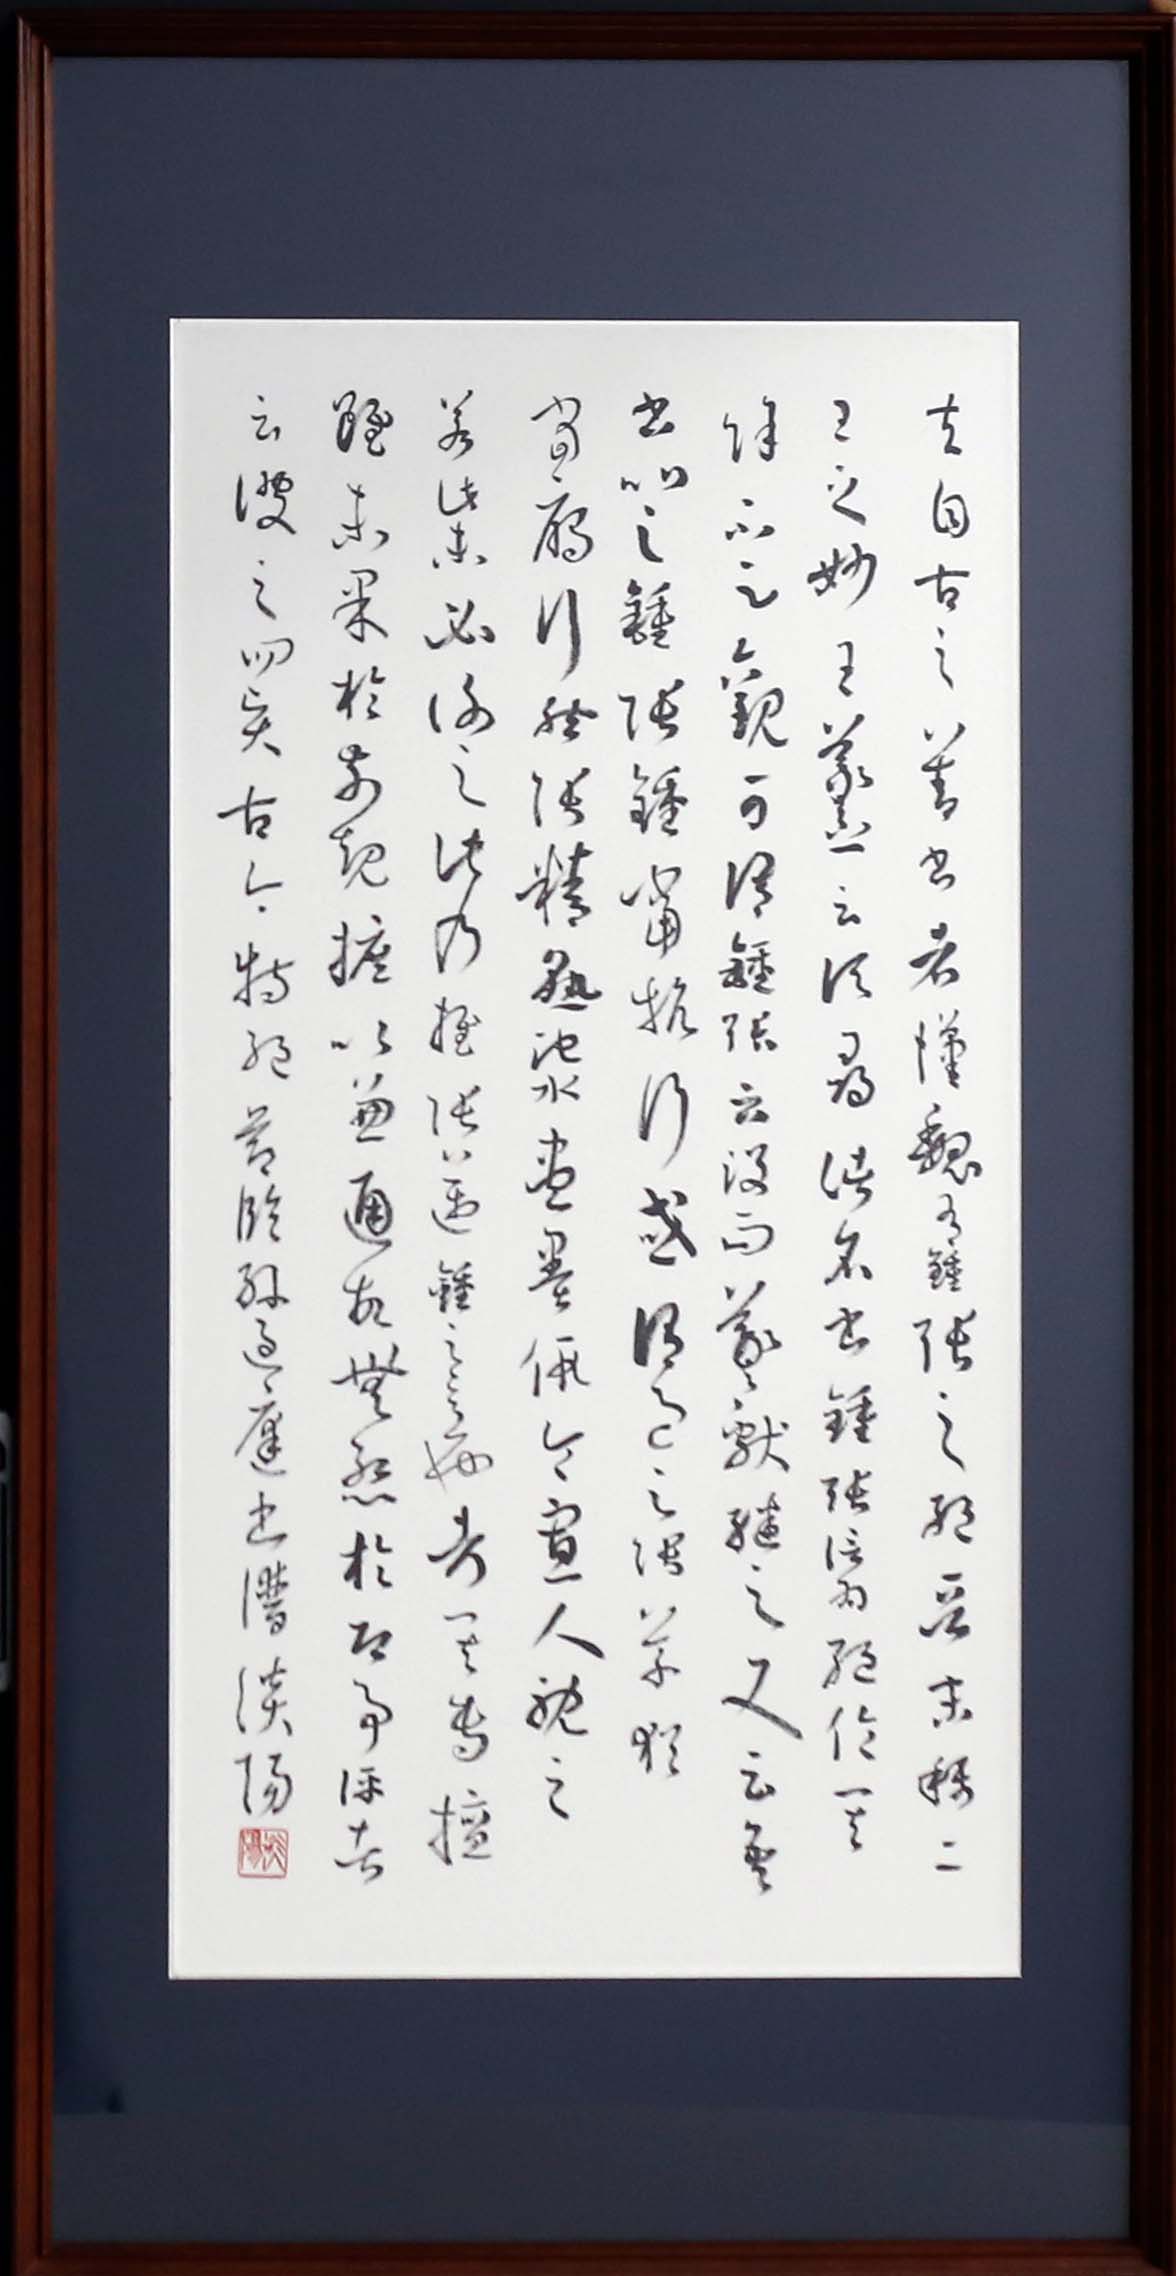 夫自古之善書者漢魏有鍾張之絕晉末稱二
王之妙王羲之云頃尋諸名書鍾張信為絕倫其
餘不足觀可謂鍾張云沒而羲獻繼之又云吾
書比之鍾張鍾當抗行或謂過之張草猶
當鴈行然張精熟池水盡墨假令寡人耽之
若此未必謝之此乃推張邁鍾之意也考其專擅
雖未果於前規摭以兼通故無慚於即事評者
云彼之四賢古今特絕節臨孫過庭書譜淡陽